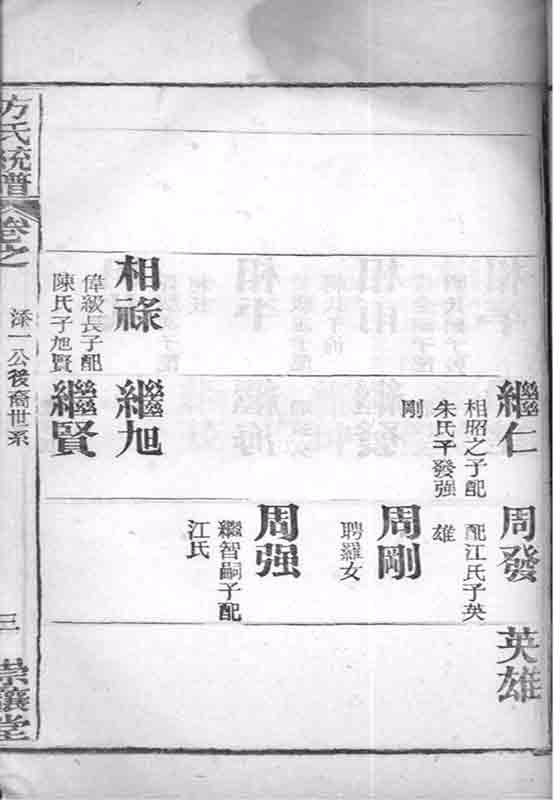 相祿
偉級長子配
陳氏子旭賢
繼仁
相昭之子配
朱氏子發强
剛
繼旭
繼賢
周發
配江氏子英
雄
周剛
聘羅女
周强
繼智嗣子配
江氏
英雄
方氏統譜
卷之
一公後裔世系
三
崇讓堂